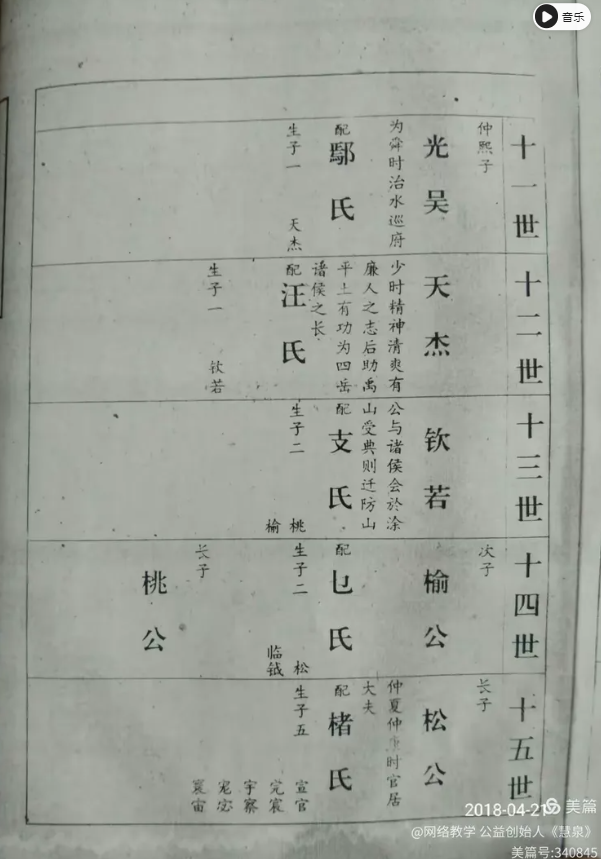 音乐
十一世
仲熙子
光吴
为舜时治水巡府
配
鄢氏
生子一 天杰
十二世
天杰
少时精神清爽有
廉人之志后助禹
平土有功为四岳
诸侯之长
配
汪氏
生子一 钦若
十三世
钦若
公与诸侯会於涂
山受典则迁防山
配
支氏
生子二 桃
榆
十四世
次子
榆公
配
乜氏
生子二 松
临钺
长子
桃公
十五世
长子
松公
仲夏仲 时官居
大夫
配
楮氏
生子五 宣官
完宸
宇察
宠宓
寰宙
2018-04-21
美篇
@网络教学 公益创始人《慧泉》
美篇号:340845